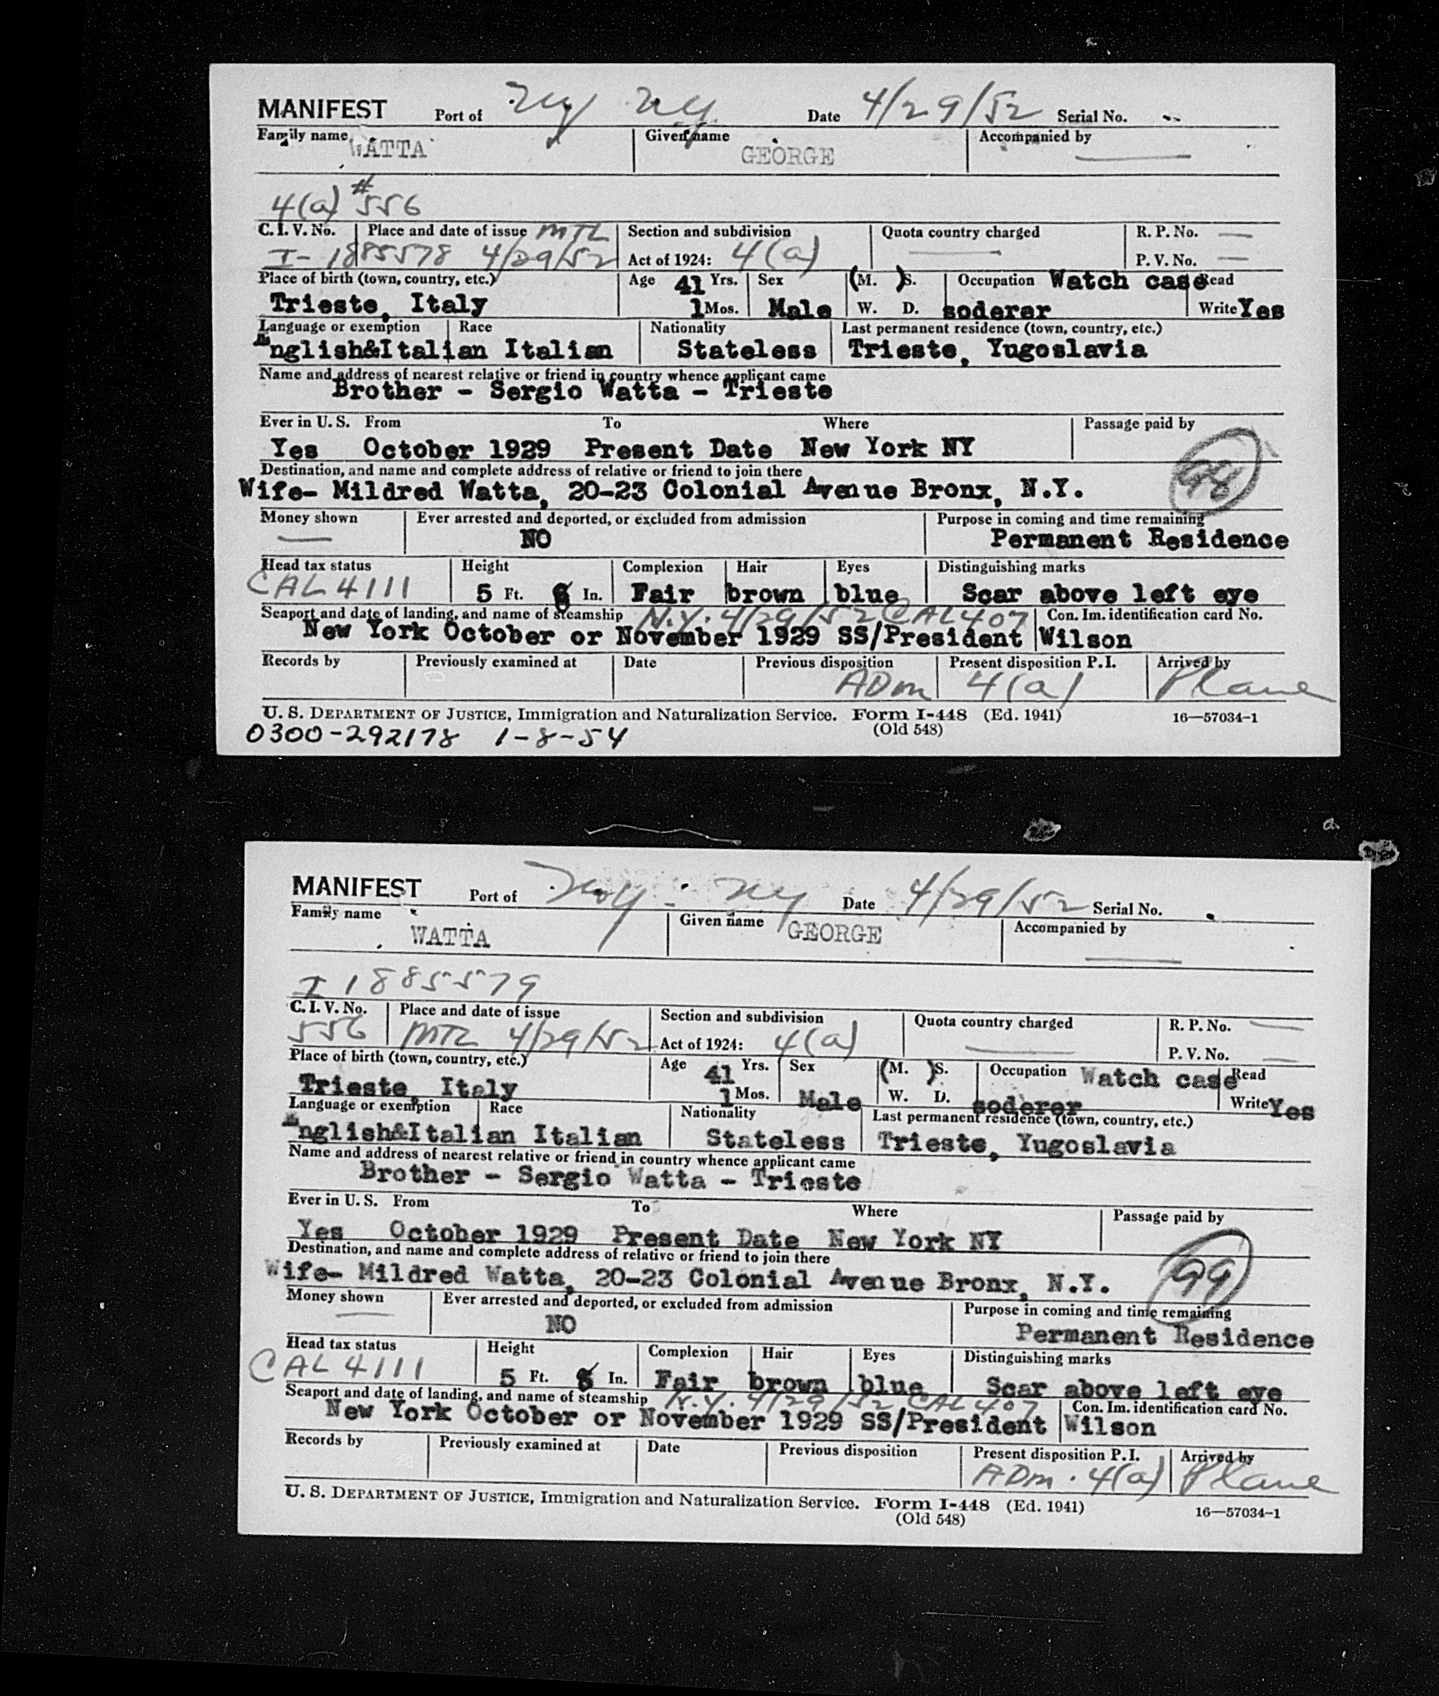 MANIFEST Port of NY NY. Date 4/29/52 Serial No. --
Family name WATTA Given name GEORGE Accompanied by
4(a) #556
C. I. V. No. Place and date of issue MTL Section and subdivision Quota country charged R. P. No. —
I-1885578 4/29/52 Act of 1924: 4(a) — P. V. No. —
Place of birth (town, country, etc.) Age 41 Yrs. Sex (M. )S. Occupation Watch case Read
Trieste, Italy 1 Mos. Male W. D. soderer Write Yes
Language or exemption Race Nationality Last permanent residence (town, country, etc.)
English&Italian Italian Stateless Trieste, Yugoslavia
Name and address of nearest relative or friend in country whence applicant came
Brother - Sergio Watta - Trieste
Ever in U. S. From To Where Passage paid by
Yes October 1929 Present Date New York NY
98
Destination, and name and complete address of relative or friend to join there
Wife- Mildred Watta, 20-23 Colonial Avenue Bronx, N.Y.
Money shown Ever arrested and deported, or excluded from admission Purpose in coming and time remaining
— NO Permanent Residence
Head tax status Height Complexion Hair Eyes Distinguishing marks
CAL 4111 5 Ft. In. Fair brown blue Scar above left eye
Seaport and date of landing, and name of steamship N.Y. 4/29/52 CAL 407 Con. Im. identification card No.
New York October or November 1929 SS/President Wilson
Records by Previously examined at Date Previous disposition Present disposition P. I. Arrived by
ADm 4(a) Plane
U. S. DEPARTMENT OF JUSTICE, Immigration and Naturalization Service. Form I-448 (Ed. 1941) 16—57034-1
(Old 548)
0300-292178 1-8-54
MANIFEST Port of NY. NY Date 4/29/52 Serial No.
Family name WATTA Given name GEORGE Accompanied by
I 1885579
C. I. V. No. Place and date of issue Section and subdivision Quota country charged R. P. No. —
556 MTL 4/29/52 Act of 1924: 4(a) — P. V. No. —
Place of birth (town, country, etc.) Age 41 Yrs. Sex (M. )S. Occupation Watch case Read
Trieste, Italy 1 Mos. Male W. D. soderer Write Yes
Language or exemption Race Nationality Last permanent residence (town, country, etc.)
English&Italian Italian Stateless Trieste, Yugoslavia
Name and address of nearest relative or friend in country whence applicant came
Brother - Sergio Watta - Trieste
Ever in U. S. From To Where Passage paid by
Yes October 1929 Present Date New York NY
99
Destination, and name and complete address of relative or friend to join there
Wife- Mildred Watta, 20-23 Colonial Avenue Bronx, N.Y.
Money shown Ever arrested and deported, or excluded from admission Purpose in coming and time remaining
— NO Permanent Residence
Head tax status Height Complexion Hair Eyes Distinguishing marks
CAL 4111 5 Ft. In. Fair brown blue Scar above left eye
Seaport and date of landing, and name of steamship N.Y. 4/29/52 CAL 407 Con. Im. identification card No.
New York October or November 1929 SS/President Wilson
Records by Previously examined at Date Previous disposition Present disposition P. I. Arrived by
ADm. 4(a) Plane
U. S. DEPARTMENT OF JUSTICE, Immigration and Naturalization Service. Form I-448 (Ed. 1941) 16—57034-1
(Old 548)